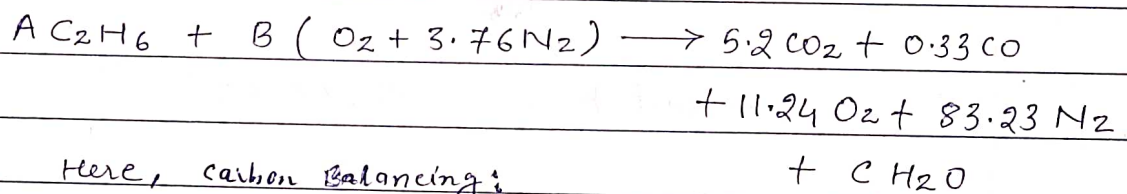 A C2H6 + B ( O2 + 3.76 N2 ) ⟶ 5.2 CO2 + 0.33 CO
+ 11.24 O2 + 83.23 N2
Here, carbon Balancing: + C H2O